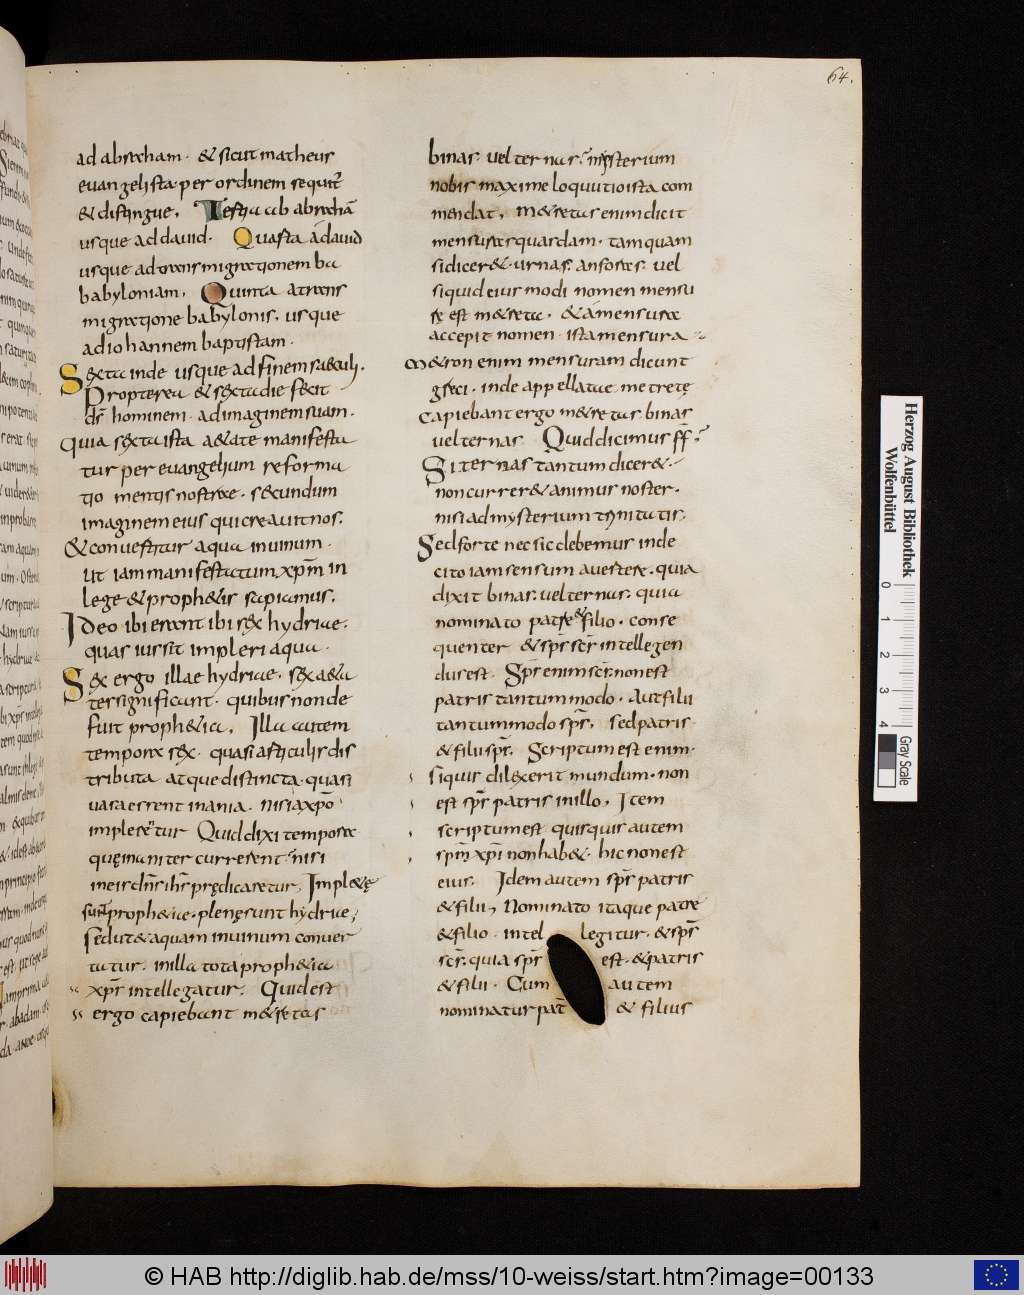 64.
ad abraham · & sicut matheus
euangelista per ordinem sequit̄
& distingue, Testia ab abrahā
usque ad dauid · Quarta adauid
usque ad transmigrationem ba
babyloniam, Quinta atrans
migratione babylonis, usque
ad iohannem baptistam ·
Sexta inde usque ad finem saeculi,
Propterea & sexta die fecit
d̄s hominem · ad imaginem suam ·
quia sexta ista aetate manifesta
tur per euangelium reforma
tio mentis nostrae · secundum
imaginem eius qui creauit nos,
& conuertitur aqua inuinum ·
Ut iam manifestatum, xp̄m in
lege & prophetis sapiamus,
Ideo ibi erant ibi sex hydriae,
quas iussit impleri aqua ·
Sex ergo illae hydriae, sex aeta
tes significant · quibus non de
fuit prophetia, Illa autem
tempora sex · quasi articulis dis
tributa atque distincta · quasi
uasa essent inania · nisi a xp̄o
implerentur Quid dixi tempora
quę inaniter currerent · nisi
in eis dn̄s ih̄s prędicaretur, Impletę
sunt prophetiae · plenę sunt hydriae,
sed ut & aquam inuinum conuer
tatur · in illa tota prophetia
xp̄s intellegatur, Quid est
ergo capiebant metretas
binas, uel ternas, mysterium
nobis maxime loquutio ista com
mendat, metretas enim dicit
mensuras quasdam · tamquam
si diceret · urnas, anforas, uel
si quid eius modi nomen mensu
re est metreta, & a mensura
accepit nomen ista mensura
metron enim mensuram dicunt
greci · inde appellatae metretę
capiebant ergo metretas, binas
uel ternas Quid dicimus f̄f̄,
Si ternas tantum diceret
non curreret animus noster ·
nisi ad mysterium trinitatis,
Sed forte nec sic debemus inde
cito iam sensum auertere · quia
dixit binas, uel ternas, quia
nominato patre & filio · conse
quenter & sp̄s sc̄s intellegen
dus est, Sp̄s enim sc̄s, non est
patris tantummodo · Aut filii
tantummodo sp̄s, sed patris
& filii sp̄s, Scriptum est enim ·
si quis dilexerit mundum · non
est sp̄s patris in illo, Item
scriptum est quisquis autem
sp̄m xp̄i non habet · hic non est
eius, Idem autem sp̄s patris
& filii, Nominato itaque patre
& filio · intellegitur · & sp̄s
sc̄s, quia sp̄s est · & patris
& filii · Cum autem
nominatur pat̄ & filius
Herzog August Bibliothek
Wolfenbüttel
0 1 2 3 4
Gray Scale
© HAB http://diglib.hab.de/mss/10-weiss/start.htm?image=00133